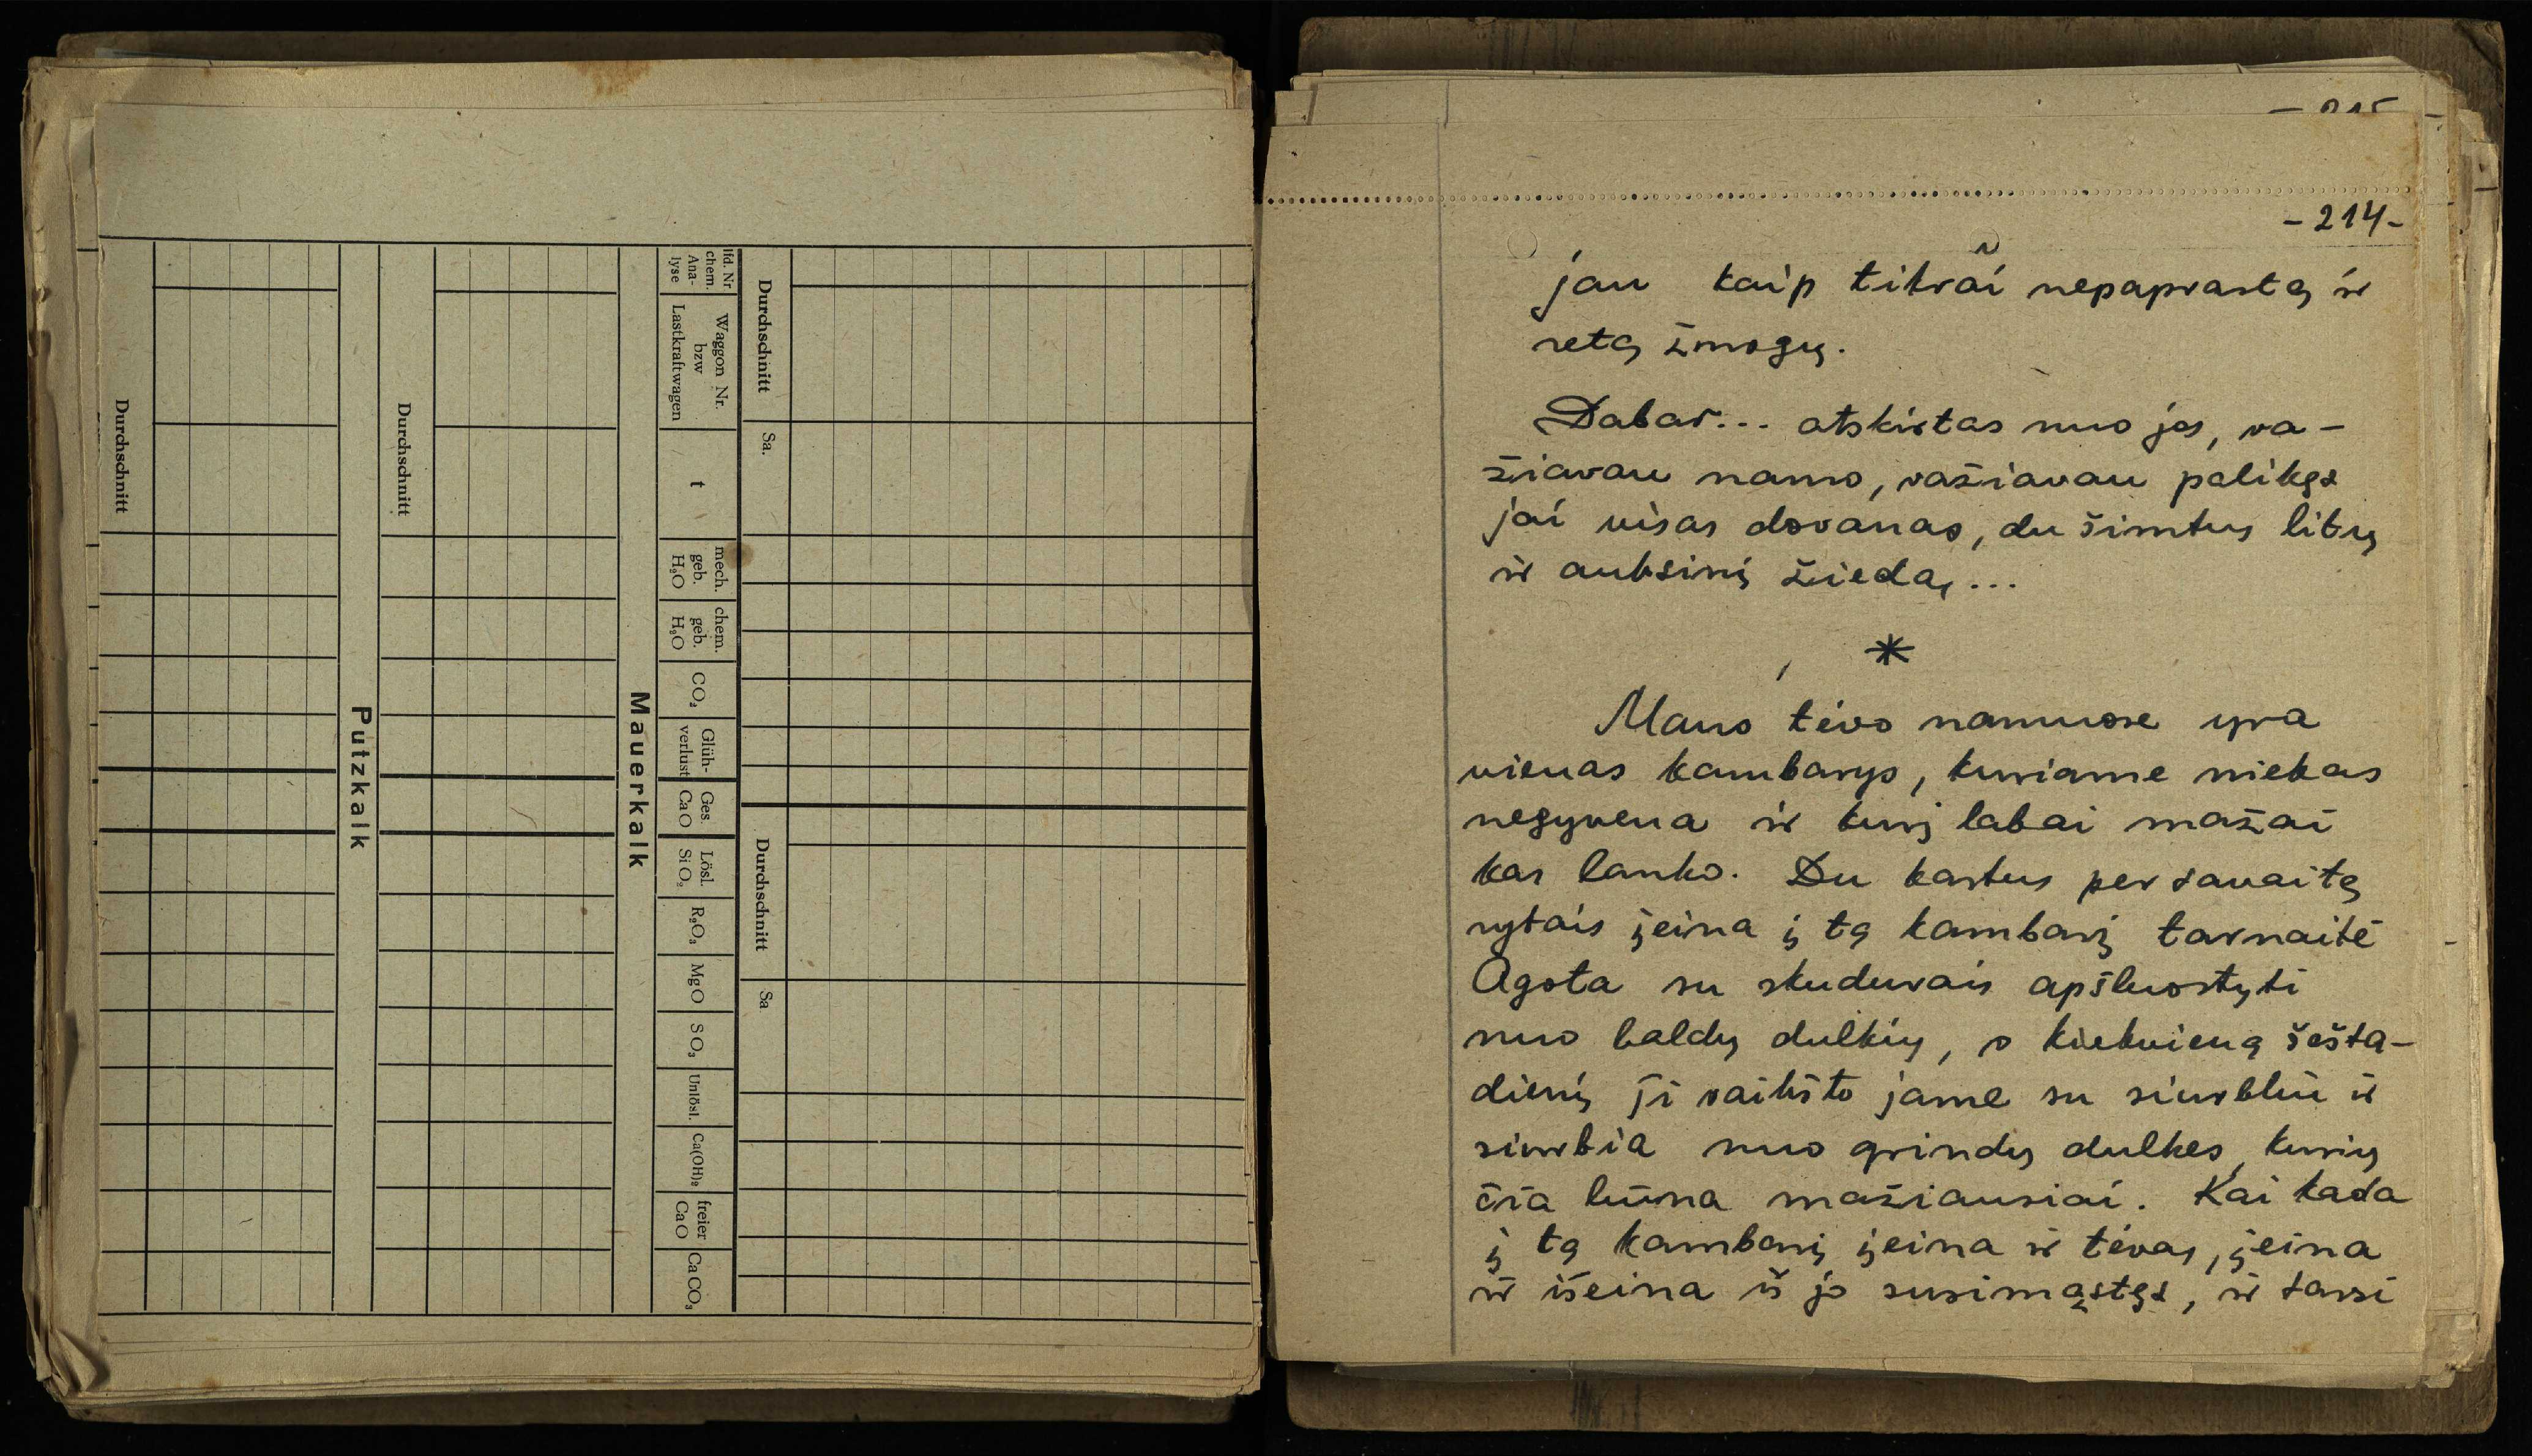 Durchschnitt
Putzkalk
Durchschnitt
Mauerkalk
lfd. Nr
chem.
Ana-
lyse
Waggon Nr.
bzw
Lastkraftwagen
t
mech.
geb.
H₂O
chem.
geb.
H₂O
CO₂
Glüh-
verlust
Ges.
CaO
Lösl.
SiO₂
R₂O₃
MgO
SO₃
Unlösl.
Ca(OH)₂
freier
CaO
CaCO₃
Durchschnitt
Sa.
Durchschnitt
Sa
- 214 -
jau kaip tikrai nepaprastą ir
retą žmogų.
Dabar... atskirtas nuo jos, va-
žiavau namo, važiavau palikęs
jai visas dovanas, du šimtus litų
ir auksinį žiedą...
*
Mano tėvo namuose yra
vienas kambarys, kuriame niekas
negyvena ir kurį labai mažai
kas lanko. Du kartus per savaitę
rytais įeina į tą kambarį tarnaitė
Agota su skudurais apšluostyti
nuo baldų dulkių, o kiekvieną šešta-
dienį ji vaikšto jame su siurbliu ir
siurbia nuo grindų dulkes, kurių
čia būna mažiausiai. Kai kada
į tą kambarį įeina ir tėvas, įeina
ir išeina iš jo susimąstęs, ir tarsi